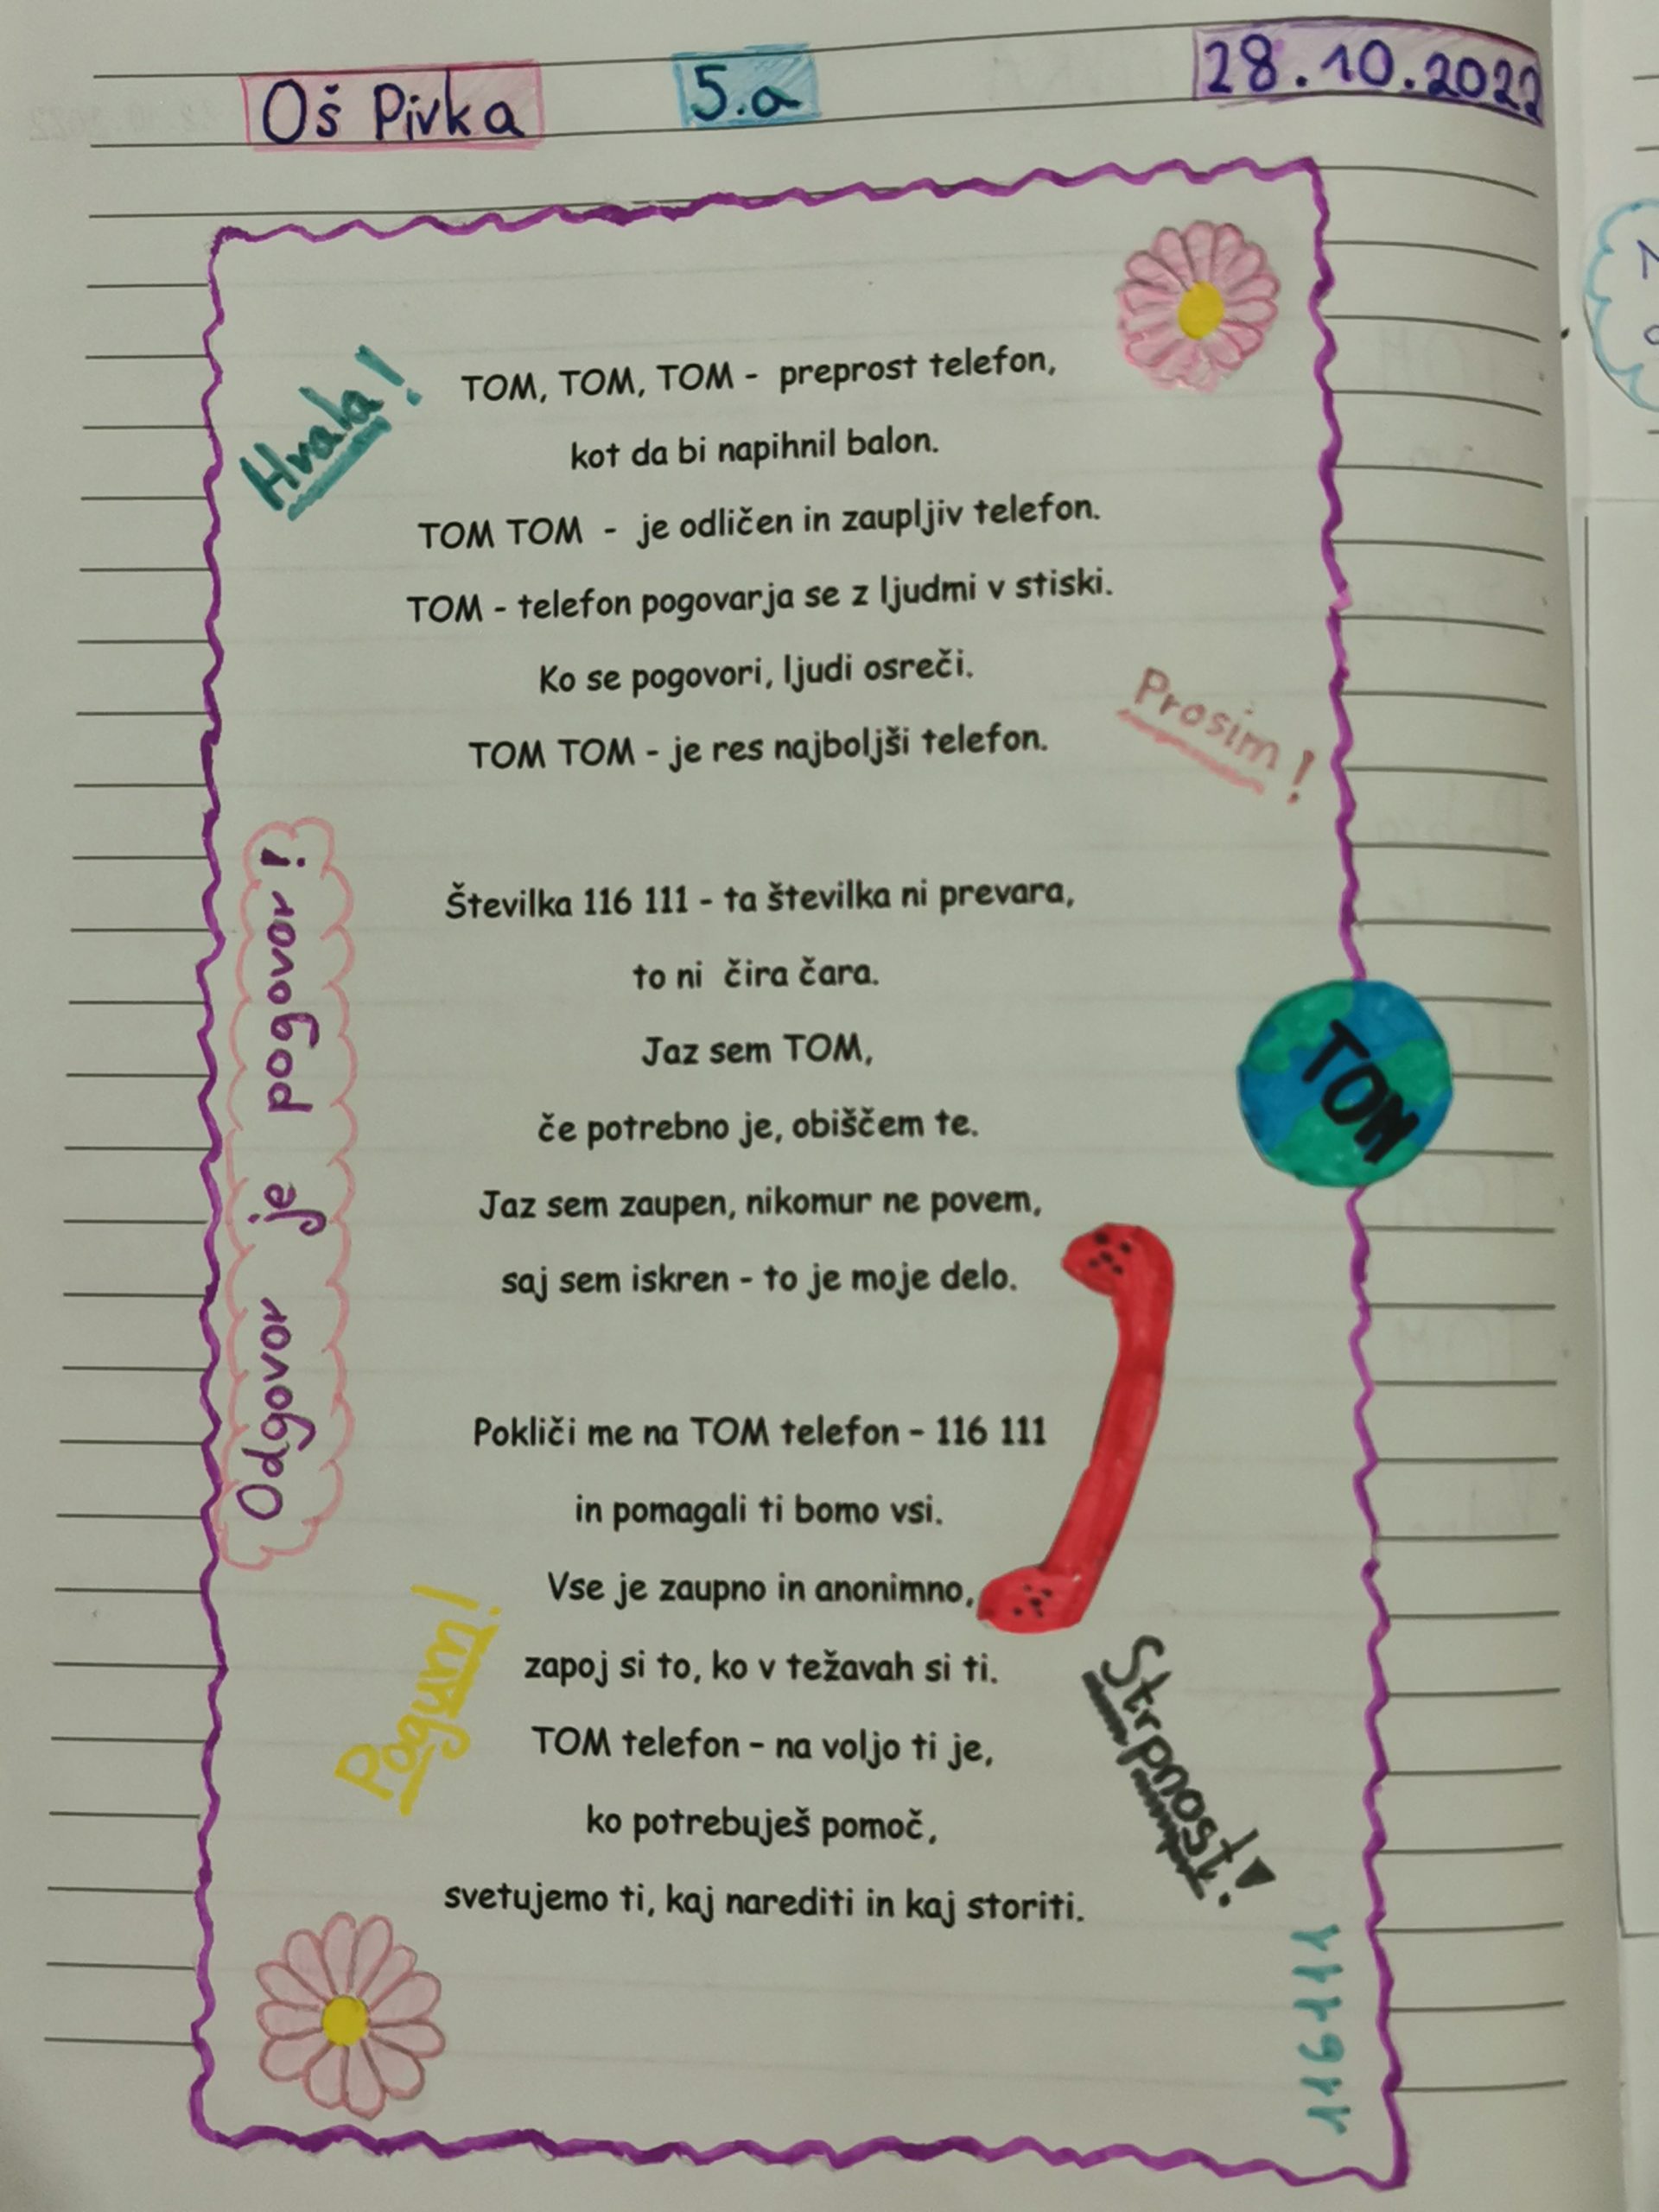 Oš Pivka 5.a 28.10.2022
Hvala!
TOM, TOM, TOM - preprost telefon,
kot da bi napihnil balon.
TOM TOM - je odličen in zaupljiv telefon.
TOM - telefon pogovarja se z ljudmi v stiski.
Ko se pogovori, ljudi osreči.
TOM TOM - je res najboljši telefon.
Prosim!
Odgovor je pogovor!
Številka 116 111 - ta številka ni prevara,
to ni čira čara.
Jaz sem TOM,
če potrebno je, obiščem te.
Jaz sem zaupen, nikomur ne povem,
saj sem iskren - to je moje delo.
TOM
Pokliči me na TOM telefon - 116 111
in pomagali ti bomo vsi.
Vse je zaupno in anonimno,
zapoj si to, ko v težavah si ti.
TOM telefon - na voljo ti je,
ko potrebuješ pomoč,
svetujemo ti, kaj narediti in kaj storiti.
Pogum!
Strpnost!
116111